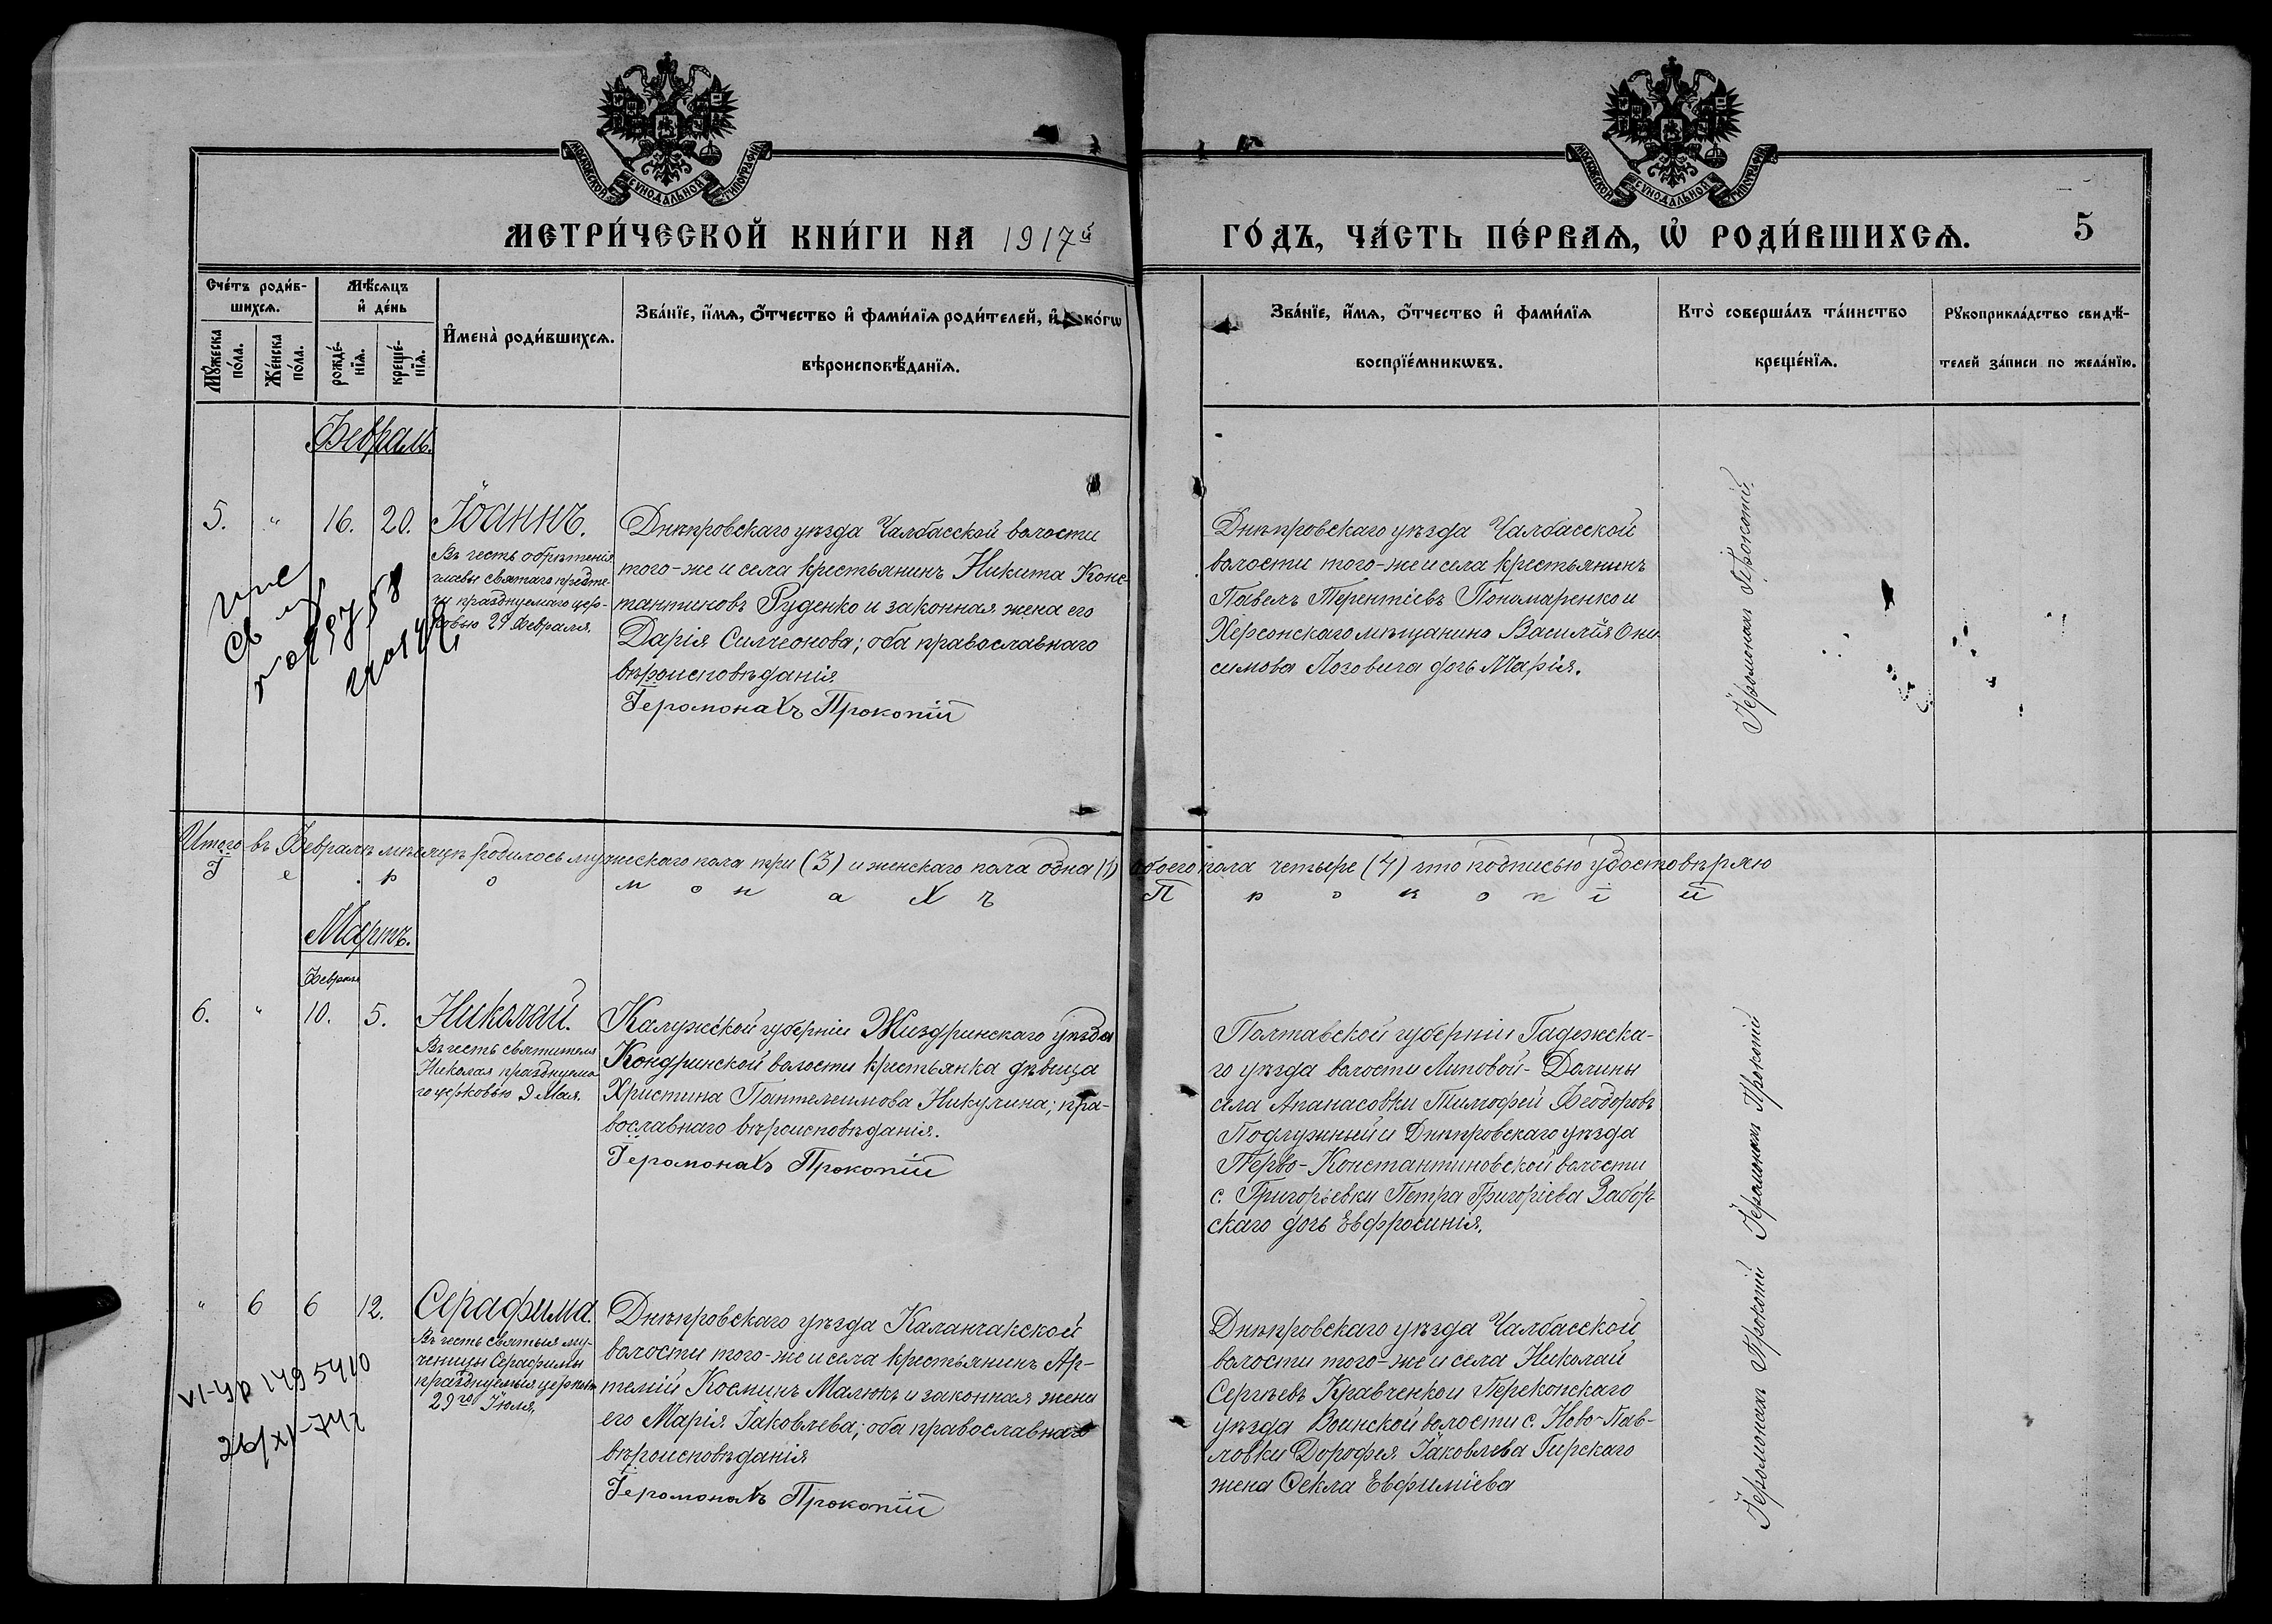 МОСКОВСКОЙ СѴНОДАЛЬНОЙ ТИПОГРАФІИ
МОСКОВСКОЙ СѴНОДАЛЬНОЙ ТИПОГРАФІИ
МЕТРИ́ЧЕСКОЙ КНИ́ГИ НА 1917й
ГО́ДЪ, ЧА́СТЬ ПЕ́РВАѦ, Ѡ РОДИ́ВШИХСѦ. 5
Сче́тъ роди́в-
шихсѧ.
Мꙋ́жеска по́ла.
Же́нска по́ла.
Мѣ́сѧцъ
и҆ де́нь
рожде́-нїѧ.
креще́-нїѧ.
И҆мена̀ роди́вшихсѧ.
Зва́нїе, и҆́мѧ, ѻ҆́тчество и҆ фами́лїѧ роди́телей, и҆ ко́гѡ
вѣроисповѣ́данїѧ.
Зва́нїе, и҆́мѧ, ѻ҆́тчество и҆ фами́лїѧ
воспрїе́мникѡвъ.
Кто̀ соверша́лъ та́инство
креще́нїѧ.
Рꙋкоприкла́дство свидѣ́-
телей за́писи по жела́нїю.
Февраль.
5. " 16. 20. Іоаннъ.
Въ честь обрѣтенія
главы святаго предте-
чи празднуемаго цер-
ковью 24 Февраля.
Днѣпровскаго уѣзда Чалбасской волости
того-же и села крестьянинъ Никита Конс-
тантиновъ Руденко и законная жена его
Дарія Силчеонова; оба православнаго
вѣроисповѣданія
Іеромонахъ Прокопій
Днѣпровскаго уѣзда Чалбасской
волости того-же и села крестьянинъ
Павелъ Терентіевъ Пономаренко и
Херсонскаго мѣщанина Василія Они-
симова Лозовича дочь Марія.
Іеромонахъ Прокопій.
Итого въ Февралѣ мѣсяцѣ родилось мужескаго пола три (3) и женскаго пола одна (1) обоего пола четыре (4) что подписью удостовѣряю
Іеромонахъ Прокопій
Мартъ.
Февраля
6. " 10. 5. Николай.
Въ честь святителя
Николая празднуема-
го церковью 9 Мая.
Калужской губерніи Жиздринскаго уѣзда
Кондринской волости крестьянка дѣвица
Христина Пантелеимова Никулина; пра-
вославнаго вѣроисповѣданія.
Іеромонахъ Прокопій
Полтавской губерніи Гадежска-
го уѣзда волости Липовой-Долины
села Апанасовки Тимофей Феодоровъ
Подлужный и Днѣпровскаго уѣзда
Перво-Константиновской волости
с. Григорьевки Петра Григоріева Забор-
скаго дочь Евфросинія.
Іеромонахъ Прокопій
" 6 6 12. Серафима.
Въ честь святыя му-
ченицы Серафимы
празднуемыя церковью
29го Іюля.
VI-УР 1495410
26/XI-74г
Днѣпровскаго уѣзда Каланчакской
волости того-же и села крестьянинъ Ар-
темій Косминъ Малюкъ и законная жена
его Марія Іаковлева; оба православнаго
вѣроисповѣданія
Іеромонахъ Прокопій
Днѣпровскаго уѣзда Чалбасской
волости того-же и села Николай
Сергѣевъ Кравченко и Перекопскаго
уѣзда Воинской волости с. Ново-Пав-
ловки Дорофея Іаковлева Гирскаго
жена Ѳекла Евфиміева
Іеромонахъ Прокопій